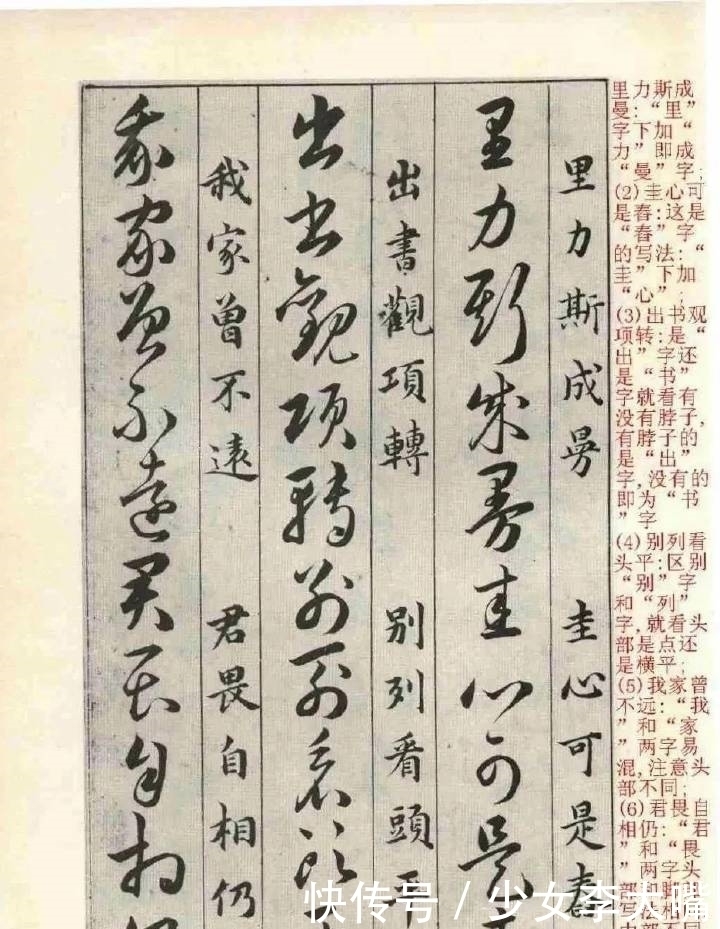 里力斯成
曼:“里”
字下加“
力”即成
“曼”字;
(2)圭心可
是春:这是
“春”字
的写法:“
圭”下加
“心”;
(3)出书观
项转:是“
出”字还
是“书”
字就看有
没有脖子,
有脖子的
是“出”
字,没有的
即为“书
”字
(4)别列看
头平:区别
“别”字
和“列”
字,就看头
部是点还
是横平;
(5)我家曾
不远:“我
”和“家
”两字易
混,注意头
部不同;
(6)君畏自
相仍:“君
”和“畏
”两字头
里力斯成旻 圭心可是春
里力斯成旻圭心可是
出書觀項轉 別列看頭平
出書觀項轉別列看頭
我家曾不遠 君畏自相仍
我家曾不遠君畏自相仍
快传号 / 少女李大嘴